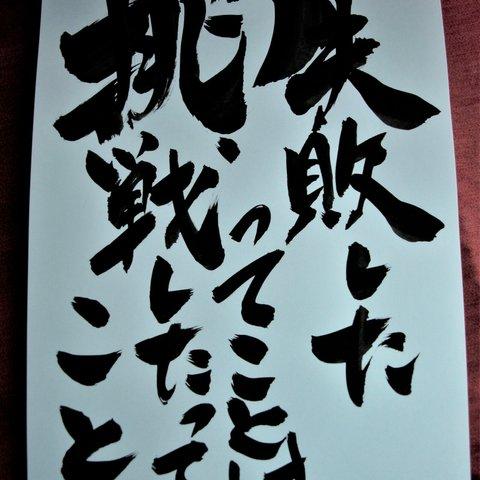 失敗した
ってことは
挑戦したって
こと